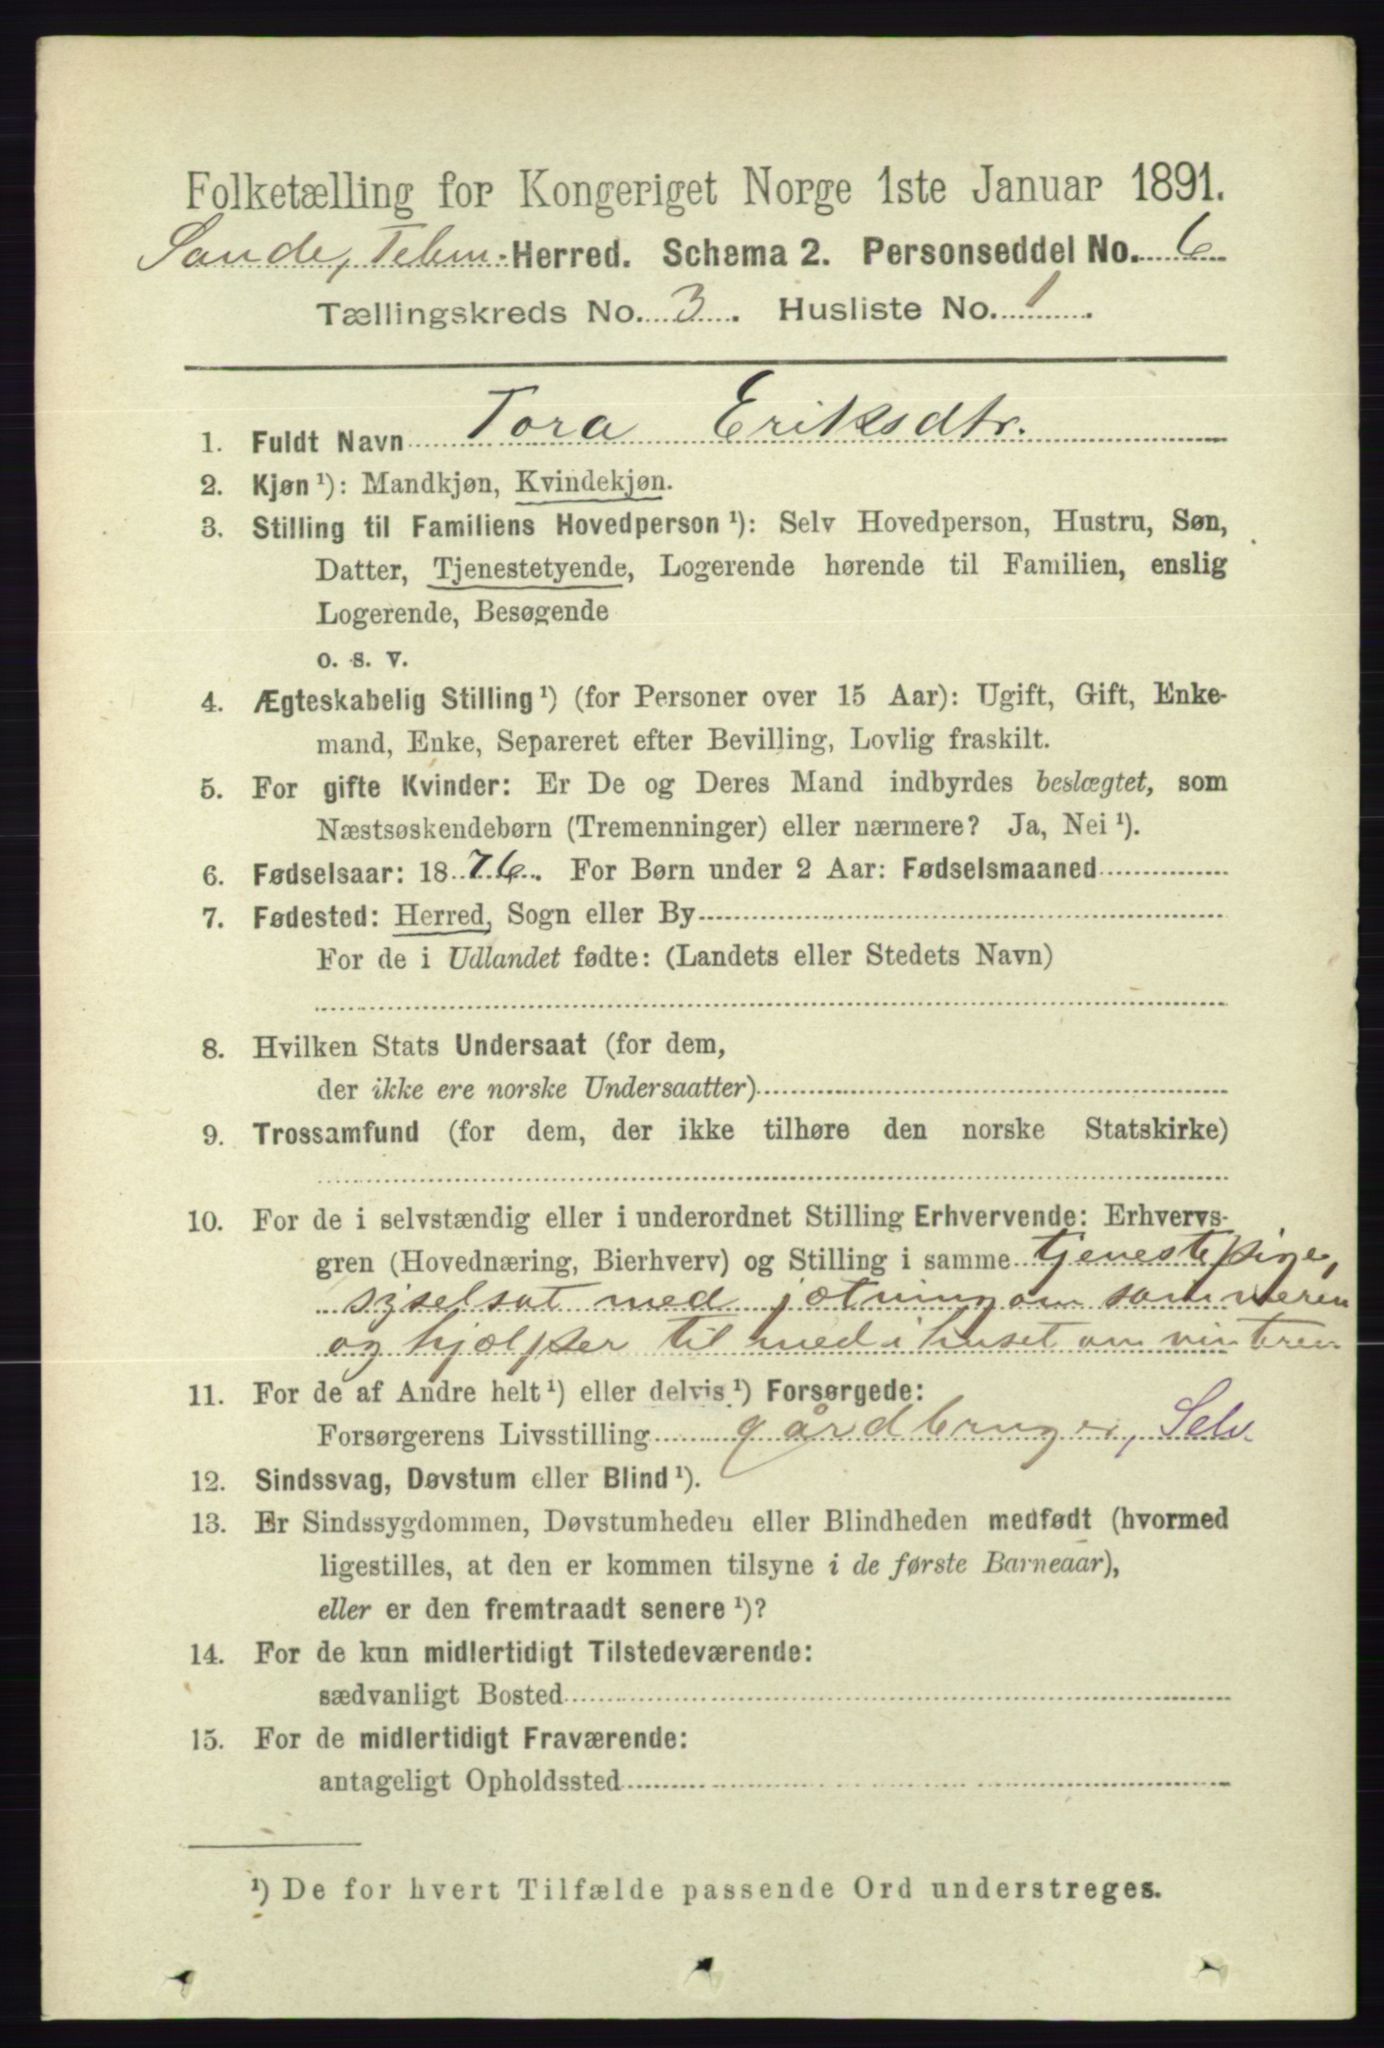 Folketælling for Kongeriget Norge 1ste Januar 1891.
Sande, Telem. Herred. Schema 2. Personseddel No. 6
Tællingskreds No. 3. Husliste No. 1.
1. Fuldt Navn Tora Eriksdtr.
2. Kjøn ¹): Mandkjøn, Kvindekjøn.
3. Stilling til Familiens Hovedperson ¹): Selv Hovedperson, Hustru, Søn,
Datter, Tjenestetyende, Logerende hørende til Familien, enslig
Logerende, Besøgende
o. s. v.
4. Ægteskabelig Stilling ¹) (for Personer over 15 Aar): Ugift, Gift, Enke-
mand, Enke, Separeret efter Bevilling, Lovlig fraskilt.
5. For gifte Kvinder: Er De og Deres Mand indbyrdes beslægtet, som
Næstsøskendebørn (Tremenninger) eller nærmere? Ja, Nei ¹).
6. Fødselsaar: 1876. For Børn under 2 Aar: Fødselsmaaned
7. Fødested: Herred, Sogn eller By
For de i Udlandet fødte: (Landets eller Stedets Navn)
8. Hvilken Stats Undersaat (for dem,
der ikke ere norske Undersaatter)
9. Trossamfund (for dem, der ikke tilhøre den norske Statskirke)
10. For de i selvstændig eller i underordnet Stilling Erhvervende: Erhvervs-
gren (Hovednæring, Bierhverv) og Stilling i samme tjenestepige,
syselsat med jætning om sommeren
og hjælper til med i huset om vinteren
11. For de af Andre helt ¹) eller delvis ¹) Forsørgede:
Forsørgerens Livsstilling gårdbruger, Selv
12. Sindssvag, Døvstum eller Blind ¹).
13. Er Sindssygdommen, Døvstumheden eller Blindheden medfødt (hvormed
ligestilles, at den er kommen tilsyne i de første Barneaar),
eller er den fremtraadt senere ¹)?
14. For de kun midlertidigt Tilstedeværende:
sædvanligt Bosted
15. For de midlertidigt Fraværende:
antageligt Opholdssted
¹) De for hvert Tilfælde passende Ord understreges.